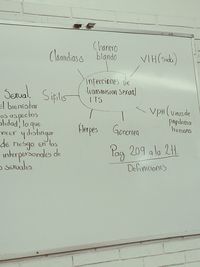 Chancro
blando
Clamidiasis
VIH (Sida)
Infecciones de
transmision Sexual
ITS
Sexual
Sifilis
el bienestar
os aspectos
alidad, lo que
nocer y distinguir
de riesgo en las
interpersonales de
s sexuales.
VPH (virus de
papiloma
humano
Herpes
Gonorrea
Pag 209 a la 211
Definiciones